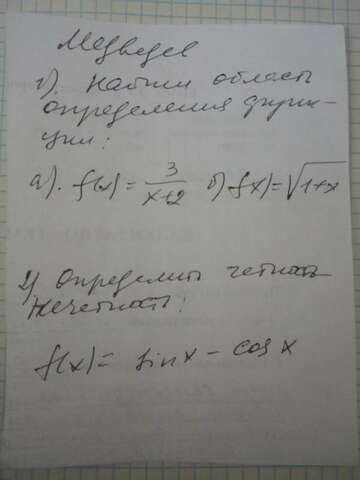 Медведев
1). Найти область
определения функ-
ции:
а). f(x) = 3/(x+2) б) f(x) = √(1+x)
2) Определить четность
нечетность:
f(x) = sin x - cos x